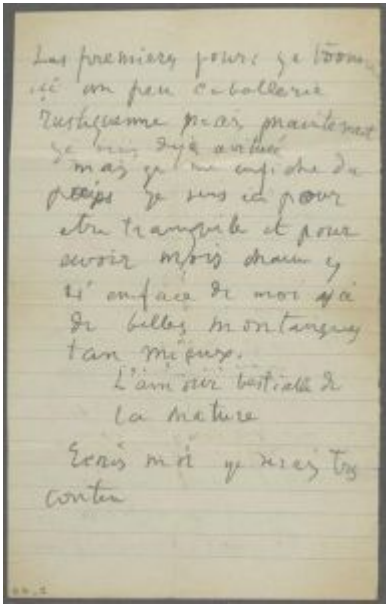 Les premiers jours ge trouv
ici un peu caballerie
rustiquenne mais maintenent
ge suis deja
mais ge me enfiche du
peips ge suis ici pour
etre tranquile et pour
avoir mois
si enface de moi
de belles montaignes
tan mieux.
L'amour bestialle de
la nature
Ecris moi ge serais tres
conten